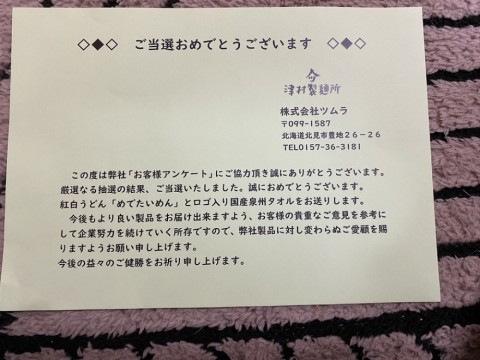 ◇◆◇ ご当選おめでとうございます ◇◆◇
津村製麺所
株式会社ツムラ
〒099-1587
北海道北見市豊地26-26
TEL0157-36-3181
この度は弊社「お客様アンケート」にご協力頂き誠にありがとうございます。
厳選なる抽選の結果、ご当選いたしました。誠におめでとうございます。
紅白うどん「めでたいめん」とロゴ入り国産泉州タオルをお送りします。
今後もより良い製品をお届け出来ますよう、お客様の貴重なご意見を参考に
して企業努力を続けていく所存ですので、弊社製品に対し変わらぬご愛顧を賜
りますようお願い申し上げます。
今後の益々のご健勝をお祈り申し上げます。